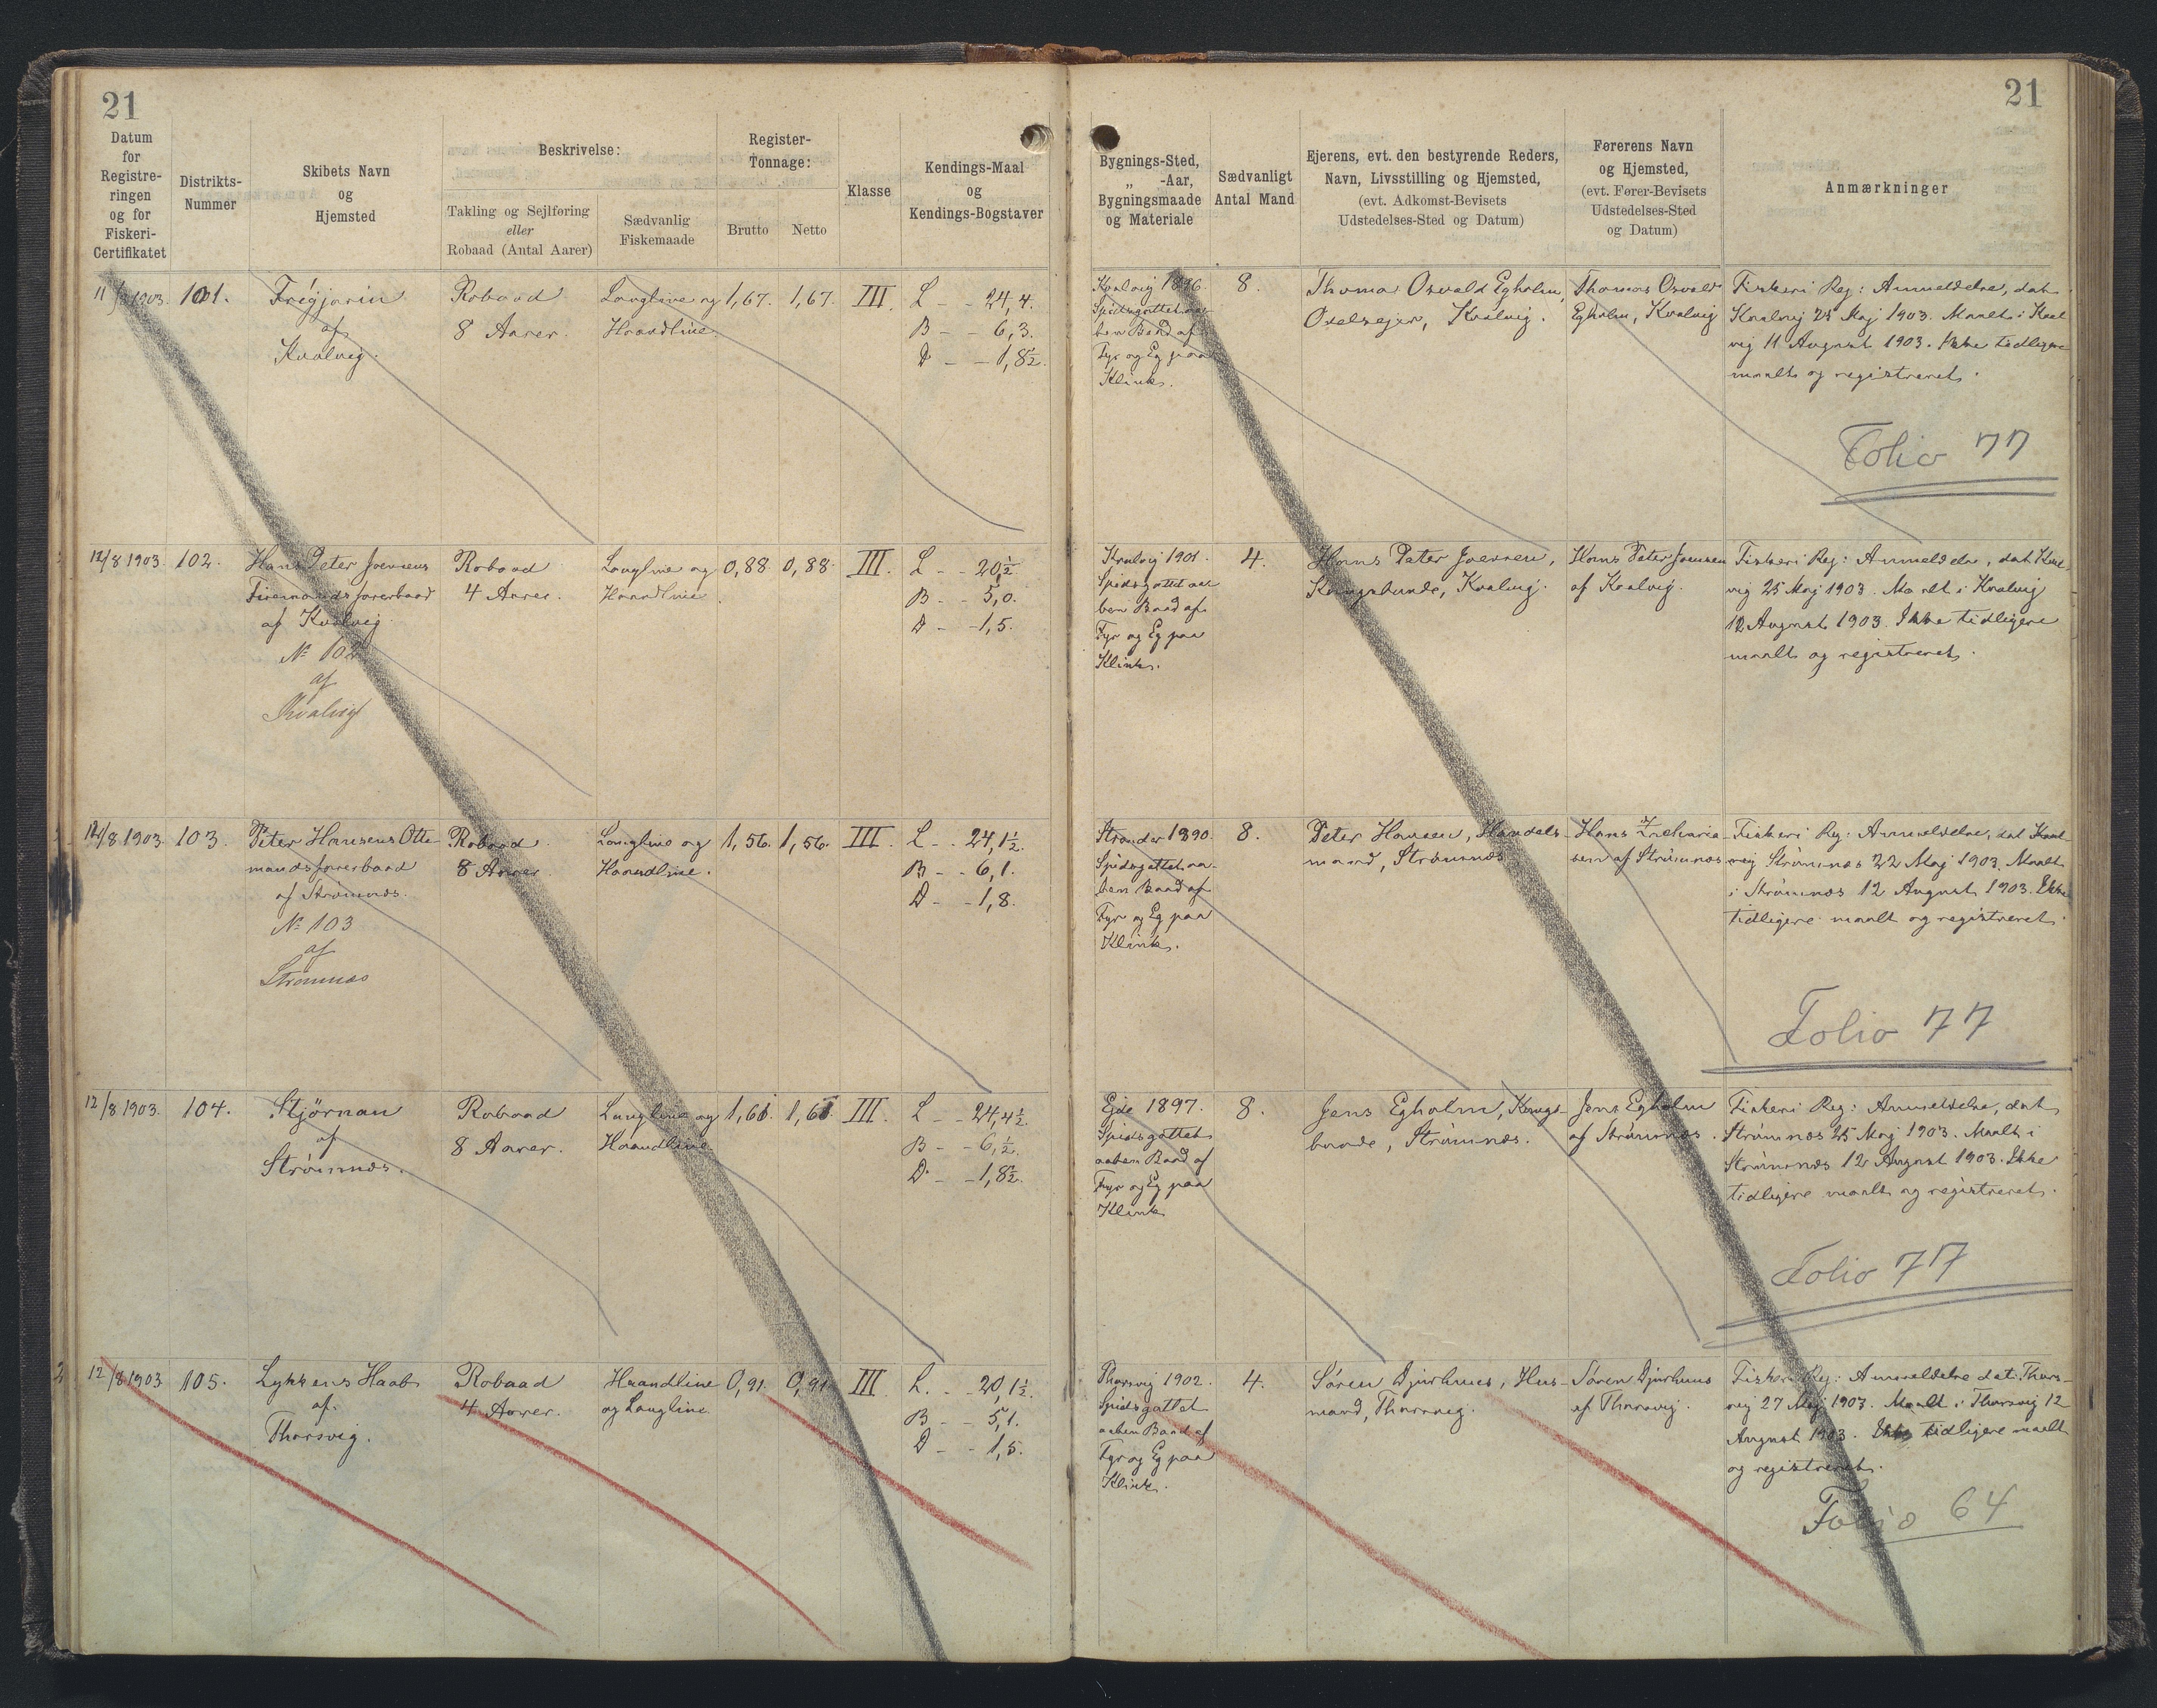 21
21
Datum
for
Registre-
ringen
og for
Fiskeri-
Certifikatet
Distrikts-
Nummer
Skibets Navn
og
Hjemsted
Beskrivelse:
Takling og Sejlføring
eller
Robaad (Antal Aarer)
Sædvanlig
Fiskemaade
Register-
Tonnage:
Brutto
Netto
Klasse
Kendings-Maal
og
Kendings-Bogstaver
Bygnings-Sted,
„ -Aar,
Bygningsmaade
og Materiale
Sædvanligt
Antal Mand
Ejerens, evt. den bestyrende Reders,
Navn, Livsstilling og Hjemsted,
(evt. Adkomst-Bevisets
Udstedelses-Sted og Datum)
Førerens Navn
og Hjemsted,
(evt. Fører-Bevisets
Udstedelses-Sted
og Datum)
Anmærkninger
11/8 1903.
101.
Frígjarin
af
Kvalvig.
Robaad
8 Aarer.
Langline og
Haandline.
1,67.
1,67.
III.
L - - 24,4.
B - - 6,3.
D - - 1,8½.
Kvalvig 1896.
Spidsgattet aa-
ben Baad af
Fyr og Eg paa
Klink.
8.
Thomas Osvald Egholm,
Odelsejer, Kvalvig.
Thomas Osvald
Egholm, Kvalvig
Fiskeri Reg: Anmeldelse, dat.
Kvalvig 25 Maj 1903. Maalt i Kval
vig 11 August 1903. Ikke tidligere
maalt og registreret.
Folio 77
12/8 1903.
102.
Hans Peter Joensens
Firemandsfarerbaad
af Kvalvig.
№ 102
af
Kvalvig
Robaad
4 Aarer.
Langline og
Haandline.
0,88.
0,88.
III.
L - - 20,½
B - - 5,0.
D - - 1,5.
Kvalvig 1901.
Spidsgattet aa-
ben Baad af
Fyr og Eg paa
Klink.
4.
Hans Peter Joensen,
Kongsbonde, Kvalvig.
Hans Peter Joensen
af Kvalvig.
Fiskeri Reg: Anmeldelse, dat Kval-
vig 25 Maj 1903. Maalt i Kvalvig
12 August 1903. Ikke tidligere
maalt og registreret.
12/8 1903.
103.
Peter Hansens Otte-
mandsfarerbaad
af Strömnæs.
№ 103
af
Strömnæs
Robaad.
8 Aarer.
Langline og
Haandline.
1,56.
1,56.
III.
L - - 24,1½.
B - - 6,1.
D - - 1,8.
Strander 1890.
Spidsgattet aa-
ben Baad af
Fyr og Eg paa
Klink.
8.
Peter Hansen, Handels-
mand, Strömnæs
Hans Zacharia-
sen af Strömnæs
Fiskeri Reg: Anmeldelse, dat Kval-
vig Strömnæs 22 Maj 1903. Maalt
i Strömnæs 12 August 1903. Ikke
tidligere maalt og registreret.
Folio 77
12/8 1903.
104.
Stjörnan
af
Strömnæs.
Robaad
8 Aarer.
Langline og
Haandline
1,61.
1,61
III.
L - - 24,4½.
B - - 6,½.
D - - 1,8½.
Ejde 1897.
Spidsgattet
aaben Baad af
Fyr og Eg paa
Klink
8.
Jens Egholm, Kongs-
bonde, Strömnæs.
Jens Egholm
af Strömnæs.
Fiskeri Reg: Anmeldelse, dat.
Strömnæs 25 Maj 1903. Maalt i
Strömnæs 12 August 1903. Ikke
tidligere maalt og registreret.
Folio 77
12/8 1903
105.
Lykkens Haab
af
Thorsvig.
Robaad
4 Aarer.
Haandline
og Langline.
0,91.
0,91
III
L. - - 20,1½.
B - - 5,1.
D - - 1,5.
Thorsvig 1902.
Spidsgattet
aaben Baad af
Fyr og Eg paa
Klink.
4.
Sören Djurhuus, Hus-
mand, Thorsvig.
Sören Djurhuus
af Thorsvig.
Fiskeri Reg: Anmeldelse dat. Thors-
vig 27 Maj 1903. Maalt i Thorsvig 12
August 1903. Ikke tidligere maalt
og registreret.
Folio 64